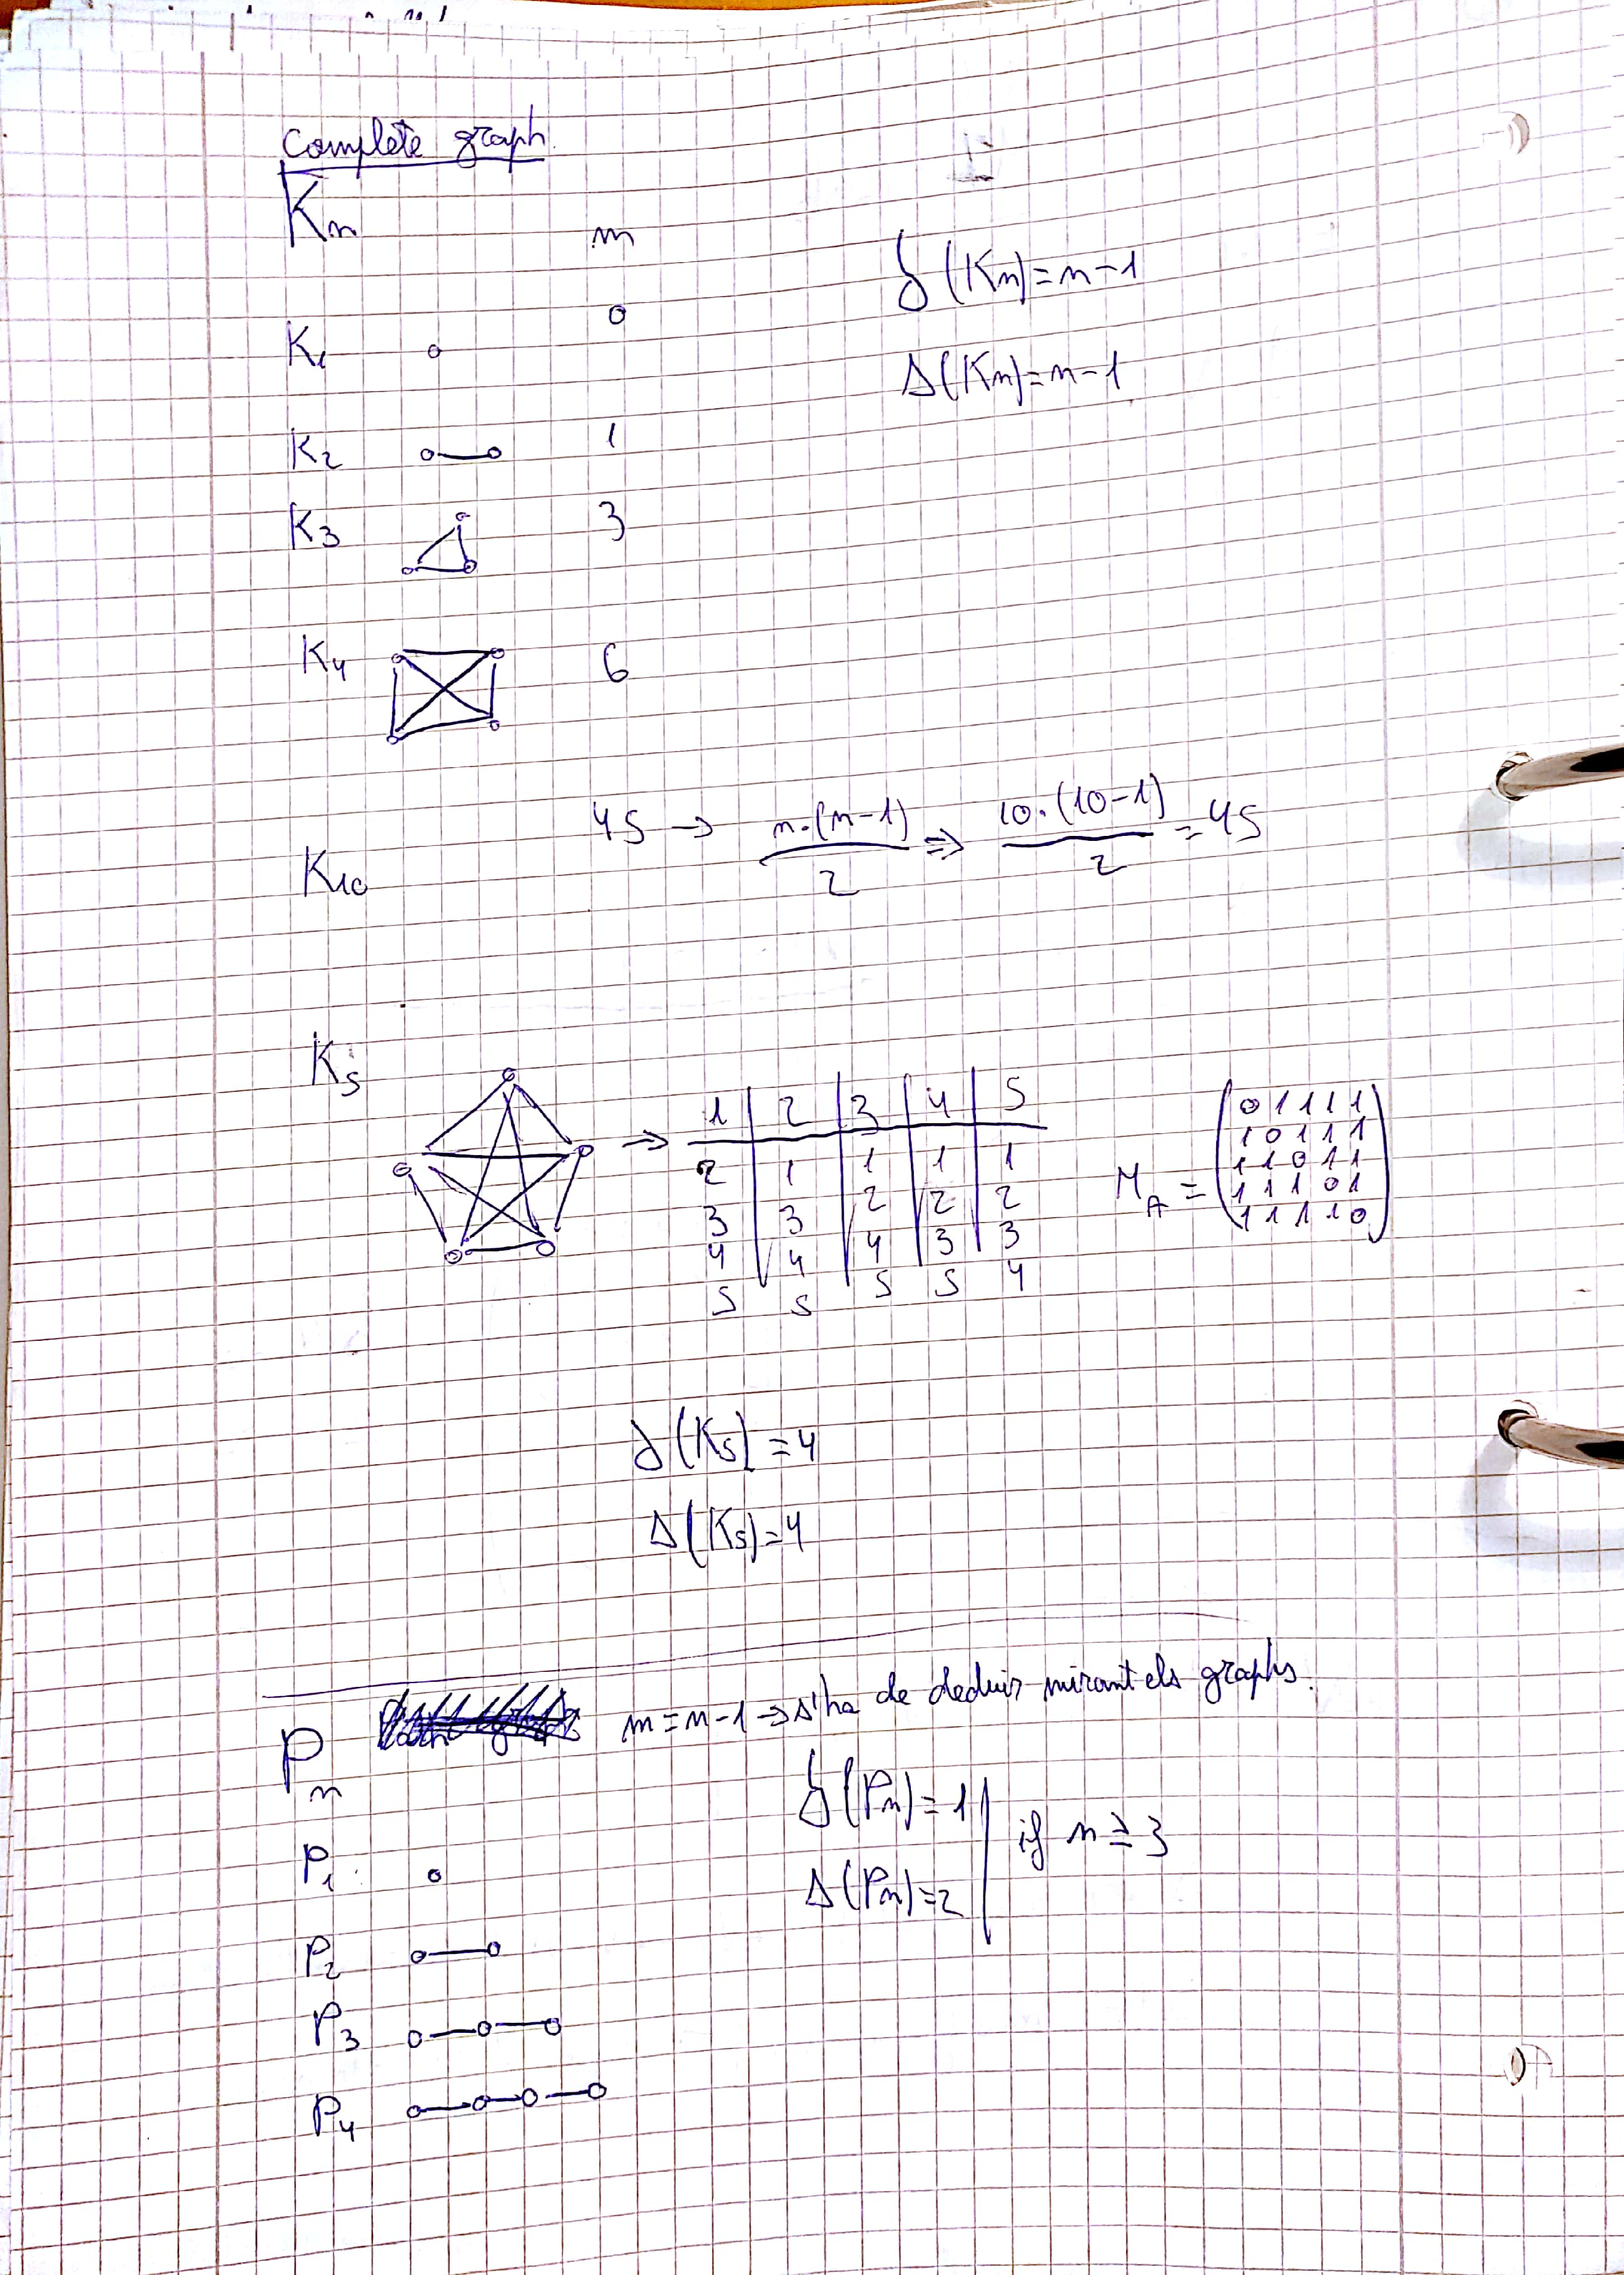 Complete graph.
Kn
m
δ(Kn)=n-1
K1 0
Δ(Kn)=n-1
K2 1
K3 3
K4 6
K10 45 → n·(n-1)/2 ⇒ 10·(10-1)/2 = 45
K5
⇒ 1 | 2 | 3 | 4 | 5
2 | 1 | 1 | 1 | 1
3 | 3 | 2 | 2 | 2
4 | 4 | 4 | 3 | 3
5 5 5 5 4
M_A = (0 1 1 1 1
1 0 1 1 1
1 1 0 1 1
1 1 1 0 1
1 1 1 1 0)
δ(K5)=4
Δ(K5)=4
Pn m=n-1 → s'ha de deduir mirant els graphs.
δ(Pn)=1
Δ(Pn)=2 | if n≥3
P1
P2
P3
P4